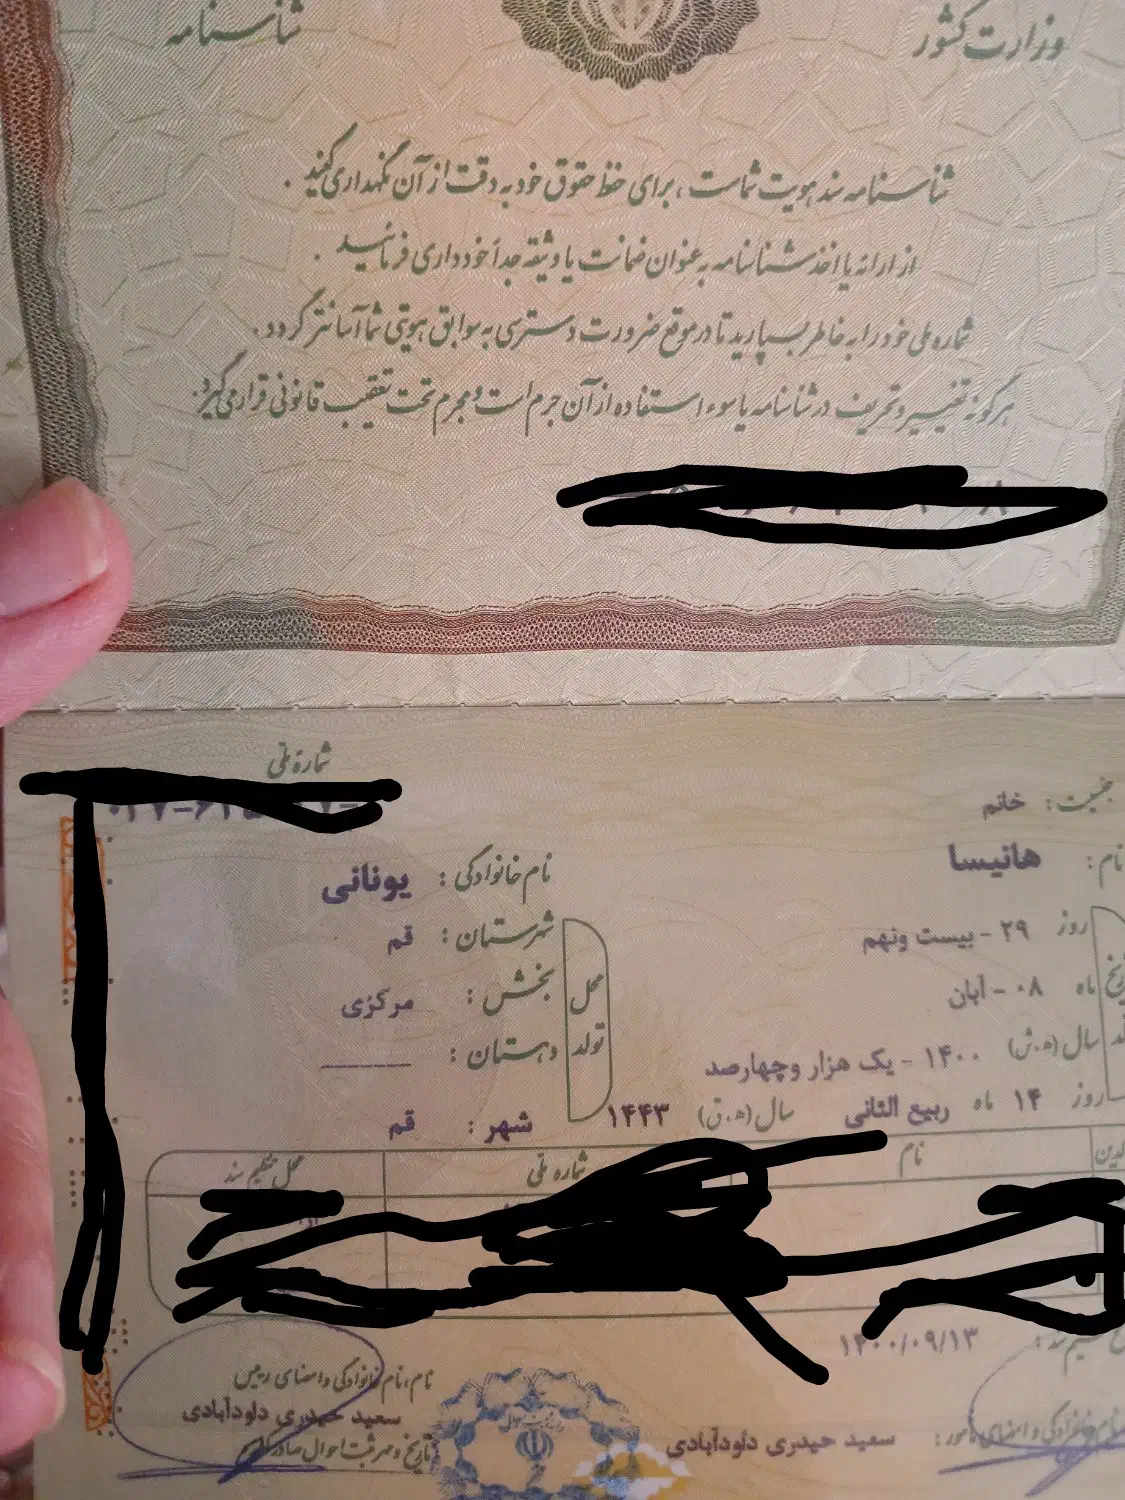 وزارت کشور
شناسنامه
شناسنامه سند هویت شماست ، برای حفظ حقوق خود به دقت از آن نگهداری کنید .
از ارائه یا اخذ شناسنامه به عنوان ضمانت یا وثیقه جداً خودداری فرمائید .
شماره ملی خود را به خاطر بسپارید تا در موقع ضرورت دسترسی به سوابق هویتی شما آسانتر گردد .
هرگونه تغییر و تحریف در شناسنامه یا سوء استفاده از آن جرم است و مجرم تحت تعقیب قانونی قرار می‌گیرد .
شماره ملی
جنسیت : خانم
نام : هانیسا
نام خانوادگی : یونانی
روز ۲۹ - بیست ونهم
شهرستان : قم
ماه ۰۸ - آبان
بخش : مرکزی
محل تولد
سال (ه.ش) ۱۴۰۰ - یک هزار وچهارصد
دهستان :
روز ۱۴ ماه ربیع الثانی سال (ه.ق) ۱۴۴۳
شهر : قم
نام
شماره ملی
محل تنظیم سند
۱۴۰۰/۰۹/۱۳
نام، نام خانوادگی و امضای رییس
سعید حیدری داودآبادی
تاریخ و مهر ثبت احوال صادر کننده
نام خانوادگی و امضای مامور : سعید حیدری داودآبادی